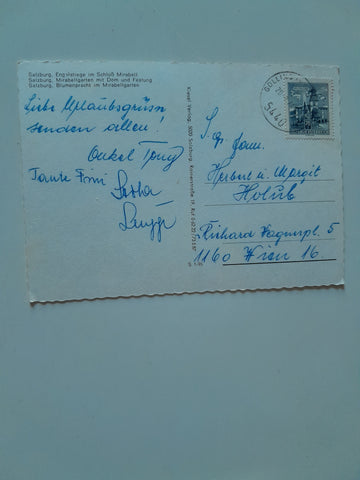 Salzburg, Engelstiege im Schloß Mirabell
Salzburg, Mirabellgarten mit Dom und Festung
Salzburg, Blumenpracht im Mirabellgarten
Liebe Urlaubsgrüße
senden allen!
Onkel Tony
Tante Fini
Kunst-Verlag, 5020 Salzburg
5440
Fam.
Herbert u. Margit
Holub
Richard Wagnerpl. 5
1160 Wien 16.